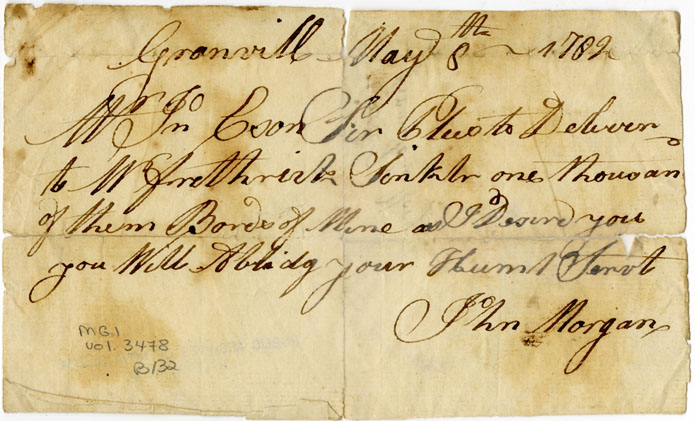 Granvill May 8th 1782
Mr Jn Eson Sir Pleas to Deliver
to Mr frethrick Sinklr one thousan
of them Bords of Mine as I Desired you
you Will Ablidg your Huml Servt
John Morgan
MG.1
vol. 3478
B/32